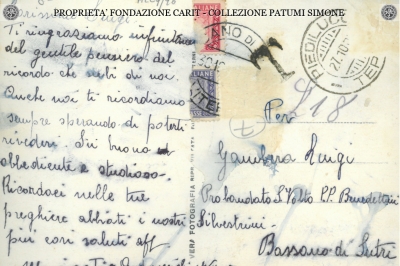 PROPRIETA' FONDAZIONE CARIT - COLLEZIONE PATUMI SIMONE
Luigi
Ti ringraziamo infinitamente
del gentile pensiero del
ricordo che hai di noi.
Anche noi ti ricordiamo
sempre sperando di poterti
rivedere. Sii buono
obbediente e studioso.
Ricordaci nelle tue
preghiere abbiati i nostri
più cari saluti aff
VERA FOTOGRAFIA
PIEDILUCO
27.10
T
L 18
Per
Gambera Luigi
Probandato S. Volto P.P. Benedettini
Silvestrini
Bassano di Sutri